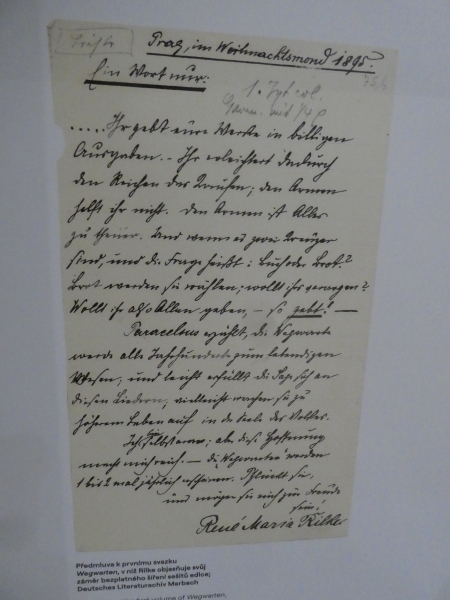 Prag, im Weihnachtsmond 1895.
Ein Wort nur:
..... Ihr gebt eure Werke in billigen
Ausgaben. – Ihr erleichtert dadurch
den Reichen das Kaufen; den Armen
helft ihr nicht. Den Armen ist Alles
zu theuer. Und wenn es zwei Kreuzer
sind, und die Frage heißt: Buch oder Brot?
Brot werden sie wählen; wollt ihr's verargen?
Wollt ihr also Allen geben, – so gebt! –
Paracelsus erzählt, die Wegwarte
werde alle Jahrhunderte zum lebendigen
Wesen; und leicht erfüllt die Sage sich an
diesen Liedern; vielleicht wachen sie zu
höherem Leben auf in der Seele des Volkes.
Ich bin selbst arm; aber diese Hoffnung
macht mich reich. – Die „Wegwarten" werden
1 bis 2 mal jährlich erscheinen. Pflückt sie,
und mögen sie euch zur Freude
sein!
René Maria Rilke
Předmluva k prvnímu svazku
Wegwarten, v níž Rilke objasňuje svůj
záměr bezplatného šíření sešitů edice;
Deutsches Literaturarchiv Marbach
first volume of Wegwarten,